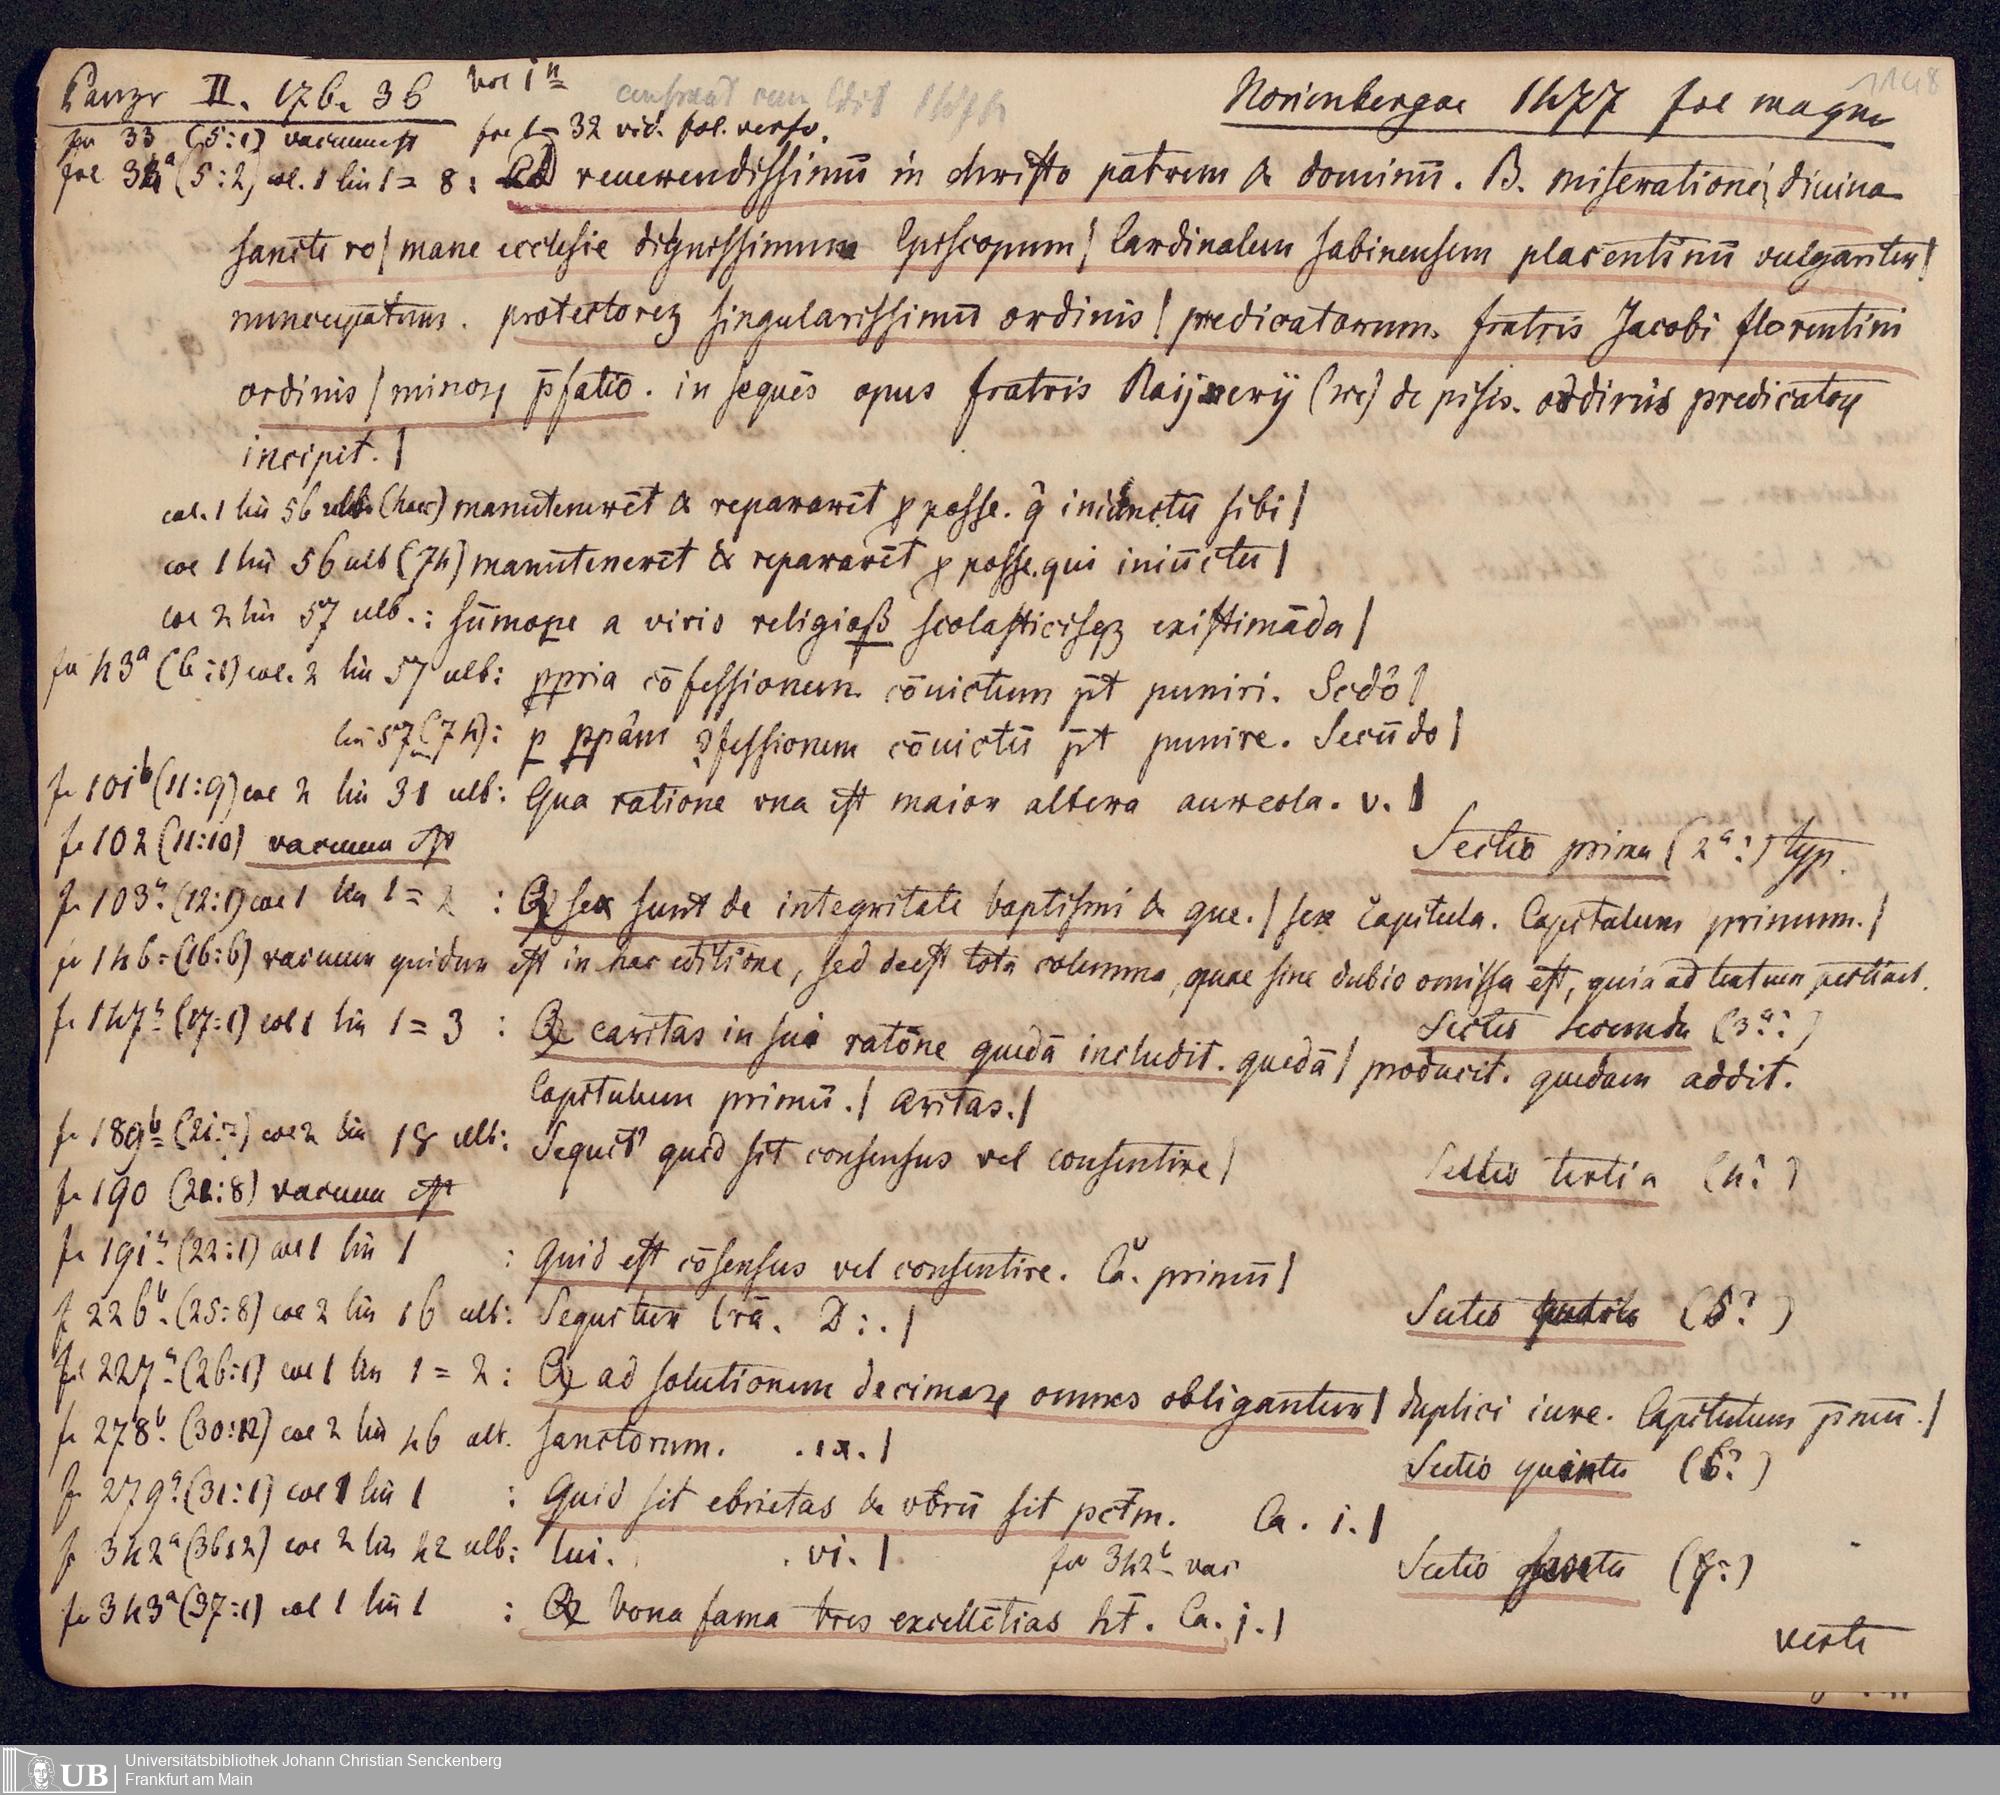 Panzer II. 176. 36 vol i
Norimbergae 1477 fol magn
fol 33 (5:1) vacuum est fol 1= 32 vid. fol. verso.
fol 34a (5:2) col. 1 lin 1= 8: Ad reuerendissimū in christo patrem & dominū. B. miseratione| diuina
sancte ro| mane ecclesie dignissimum Episcopum| Cardinalem sabinensem placentinū vulgariter|
nuncupatum. protectorez singularissimū ordinis| predicatorum. fratris Jacobi florentini
ordinis| minoꝝ p̄fatio. in sequēs opus fratris Raijnerij (sic) de pisis. ordinis predicatoꝝ
incipit.|
col. 1 lin 56 ult (haec) manuteneret & repararet ꝑ posse. q̄ iniunctū sibi|
col 1 lin 56 ult (74) manuteneret & repararēt ꝑ posse. qui iniūctū|
col 2 lin 57 ult.: sūmope a viris religiosß scolasticisqz existimāda|
fol 43a (6:1) col. 2 lin 57 ult: ꝓpria cōfessionem cōuictum p̄t puniri. Scdō|
lin 57 (74): ꝑ ꝓpām ꝯfessionem cōuictū p̄t punire. Secūdo|
fo 101b (11:9) col 2 lin 31 ult: Qua ratione vna est maior altera aureola. v.|
fo 102 (11:10) vacuum est
Sectio prima (2a?) typ.
fo 103a (12:1) col 1 lin 1= 2 : Q sex sunt de integritate baptismi & que.| sex capitula. Capitulum primum.|
fo 146= (16:6) vacuum quidem est in hac editione, sed deest tota columna, quae sine dubio omissa est, quia ad textum pertinet.
fo 147a (17:1) col 1 lin 1= 3 : Q caritas in sui ratōne quedā includit. quedā| producit. quedam addit.
Sectio secunda (3a?)
Capitulum primū.| Aritas.|
fo 189b (21:7) col 2 lin 18 ult: Sequit' quid sit consensus vel consentire|
fo 190 (21:8) vacuum est
Sectio tertia (4?)
fo 191a (22:1) col 1 lin 1 : Quid est cōsensus vel consentire. Ca. primū|
f 226b (25:8) col 2 lin 16 ult: Sequitur lrā. D:.|
Sectio quarta (5?)
fol 227a (26:1) col 1 lin 1= 2 : Q ad solutionem decimaꝝ omnes obligantur| duplici iure. Capitulum p̄mū.|
fo 278b (30:12) col 2 lin 46 ult. sanctorum. .ix.|
Sectio quinta (6?)
fo 279a (31:1) col 1 lin 1 : Quid sit ebrietas & vtrū sit pctm. Ca. i.|
f 342a (36:2) col 2 lin 42 ult: lui. .vi.| fo 342b vac
Sectio sexta (7?)
fo 343a (37:1) col 1 lin 1 : Q bona fama tres excellētias ht. Ca. j.|
verte
UB Universitätsbibliothek Johann Christian Senckenberg
Frankfurt am Main